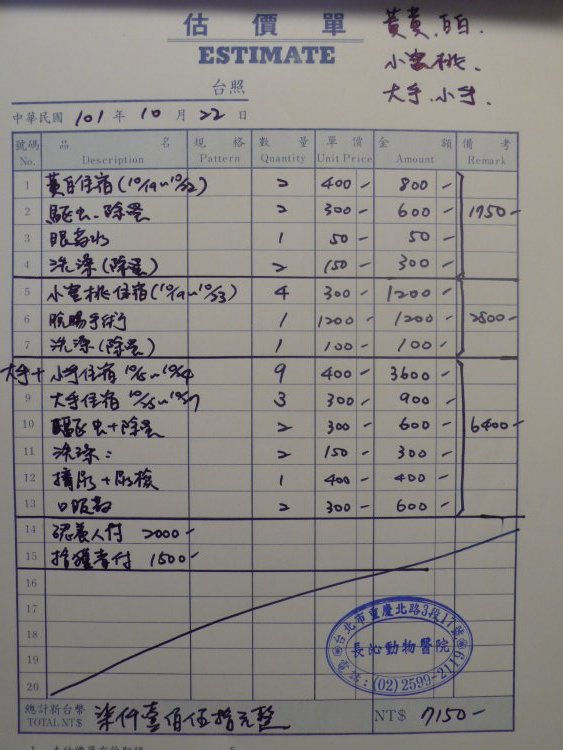 估價單
ESTIMATE
黃黃.白白.
小蜜桃.
大手.小手.
台照
中華民國 101 年 10 月 22 日
號碼 品名 規格 數量 單價 金額 備考
No. Description Pattern Quantity Unit Price Amount Remark
1 黃白住宿(10/19~10/22) 2 400- 800-
2 驅虫.除蚤 2 300- 600- 1750-
3 眼藥水 1 50- 50-
4 洗澡(除蚤) 2 150- 300-
5 小蜜桃住宿(10/19~10/23) 4 300- 1200-
6 脫腸手術 1 1200- 1200- 2500-
7 洗澡(除蚤) 1 100- 100-
大手+小手住宿 9 400- 3600-
9 大手住宿 3 300- 900-
10 驅虫+除蚤 2 300- 600- 6400-
11 洗澡: 2 150- 300-
12 擠尿+尿檢 1 400- 400-
13 口服藥 2 300- 600-
14 認養人付 2000-
15 拾獲者付 1500-
16
17
18
19
20
台北市重慶北路3段17號
長沁動物醫院
(02)2599-211
總計新台幣 柒仟壹佰伍拾元整
TOTAL NT$ NT$ 7150-